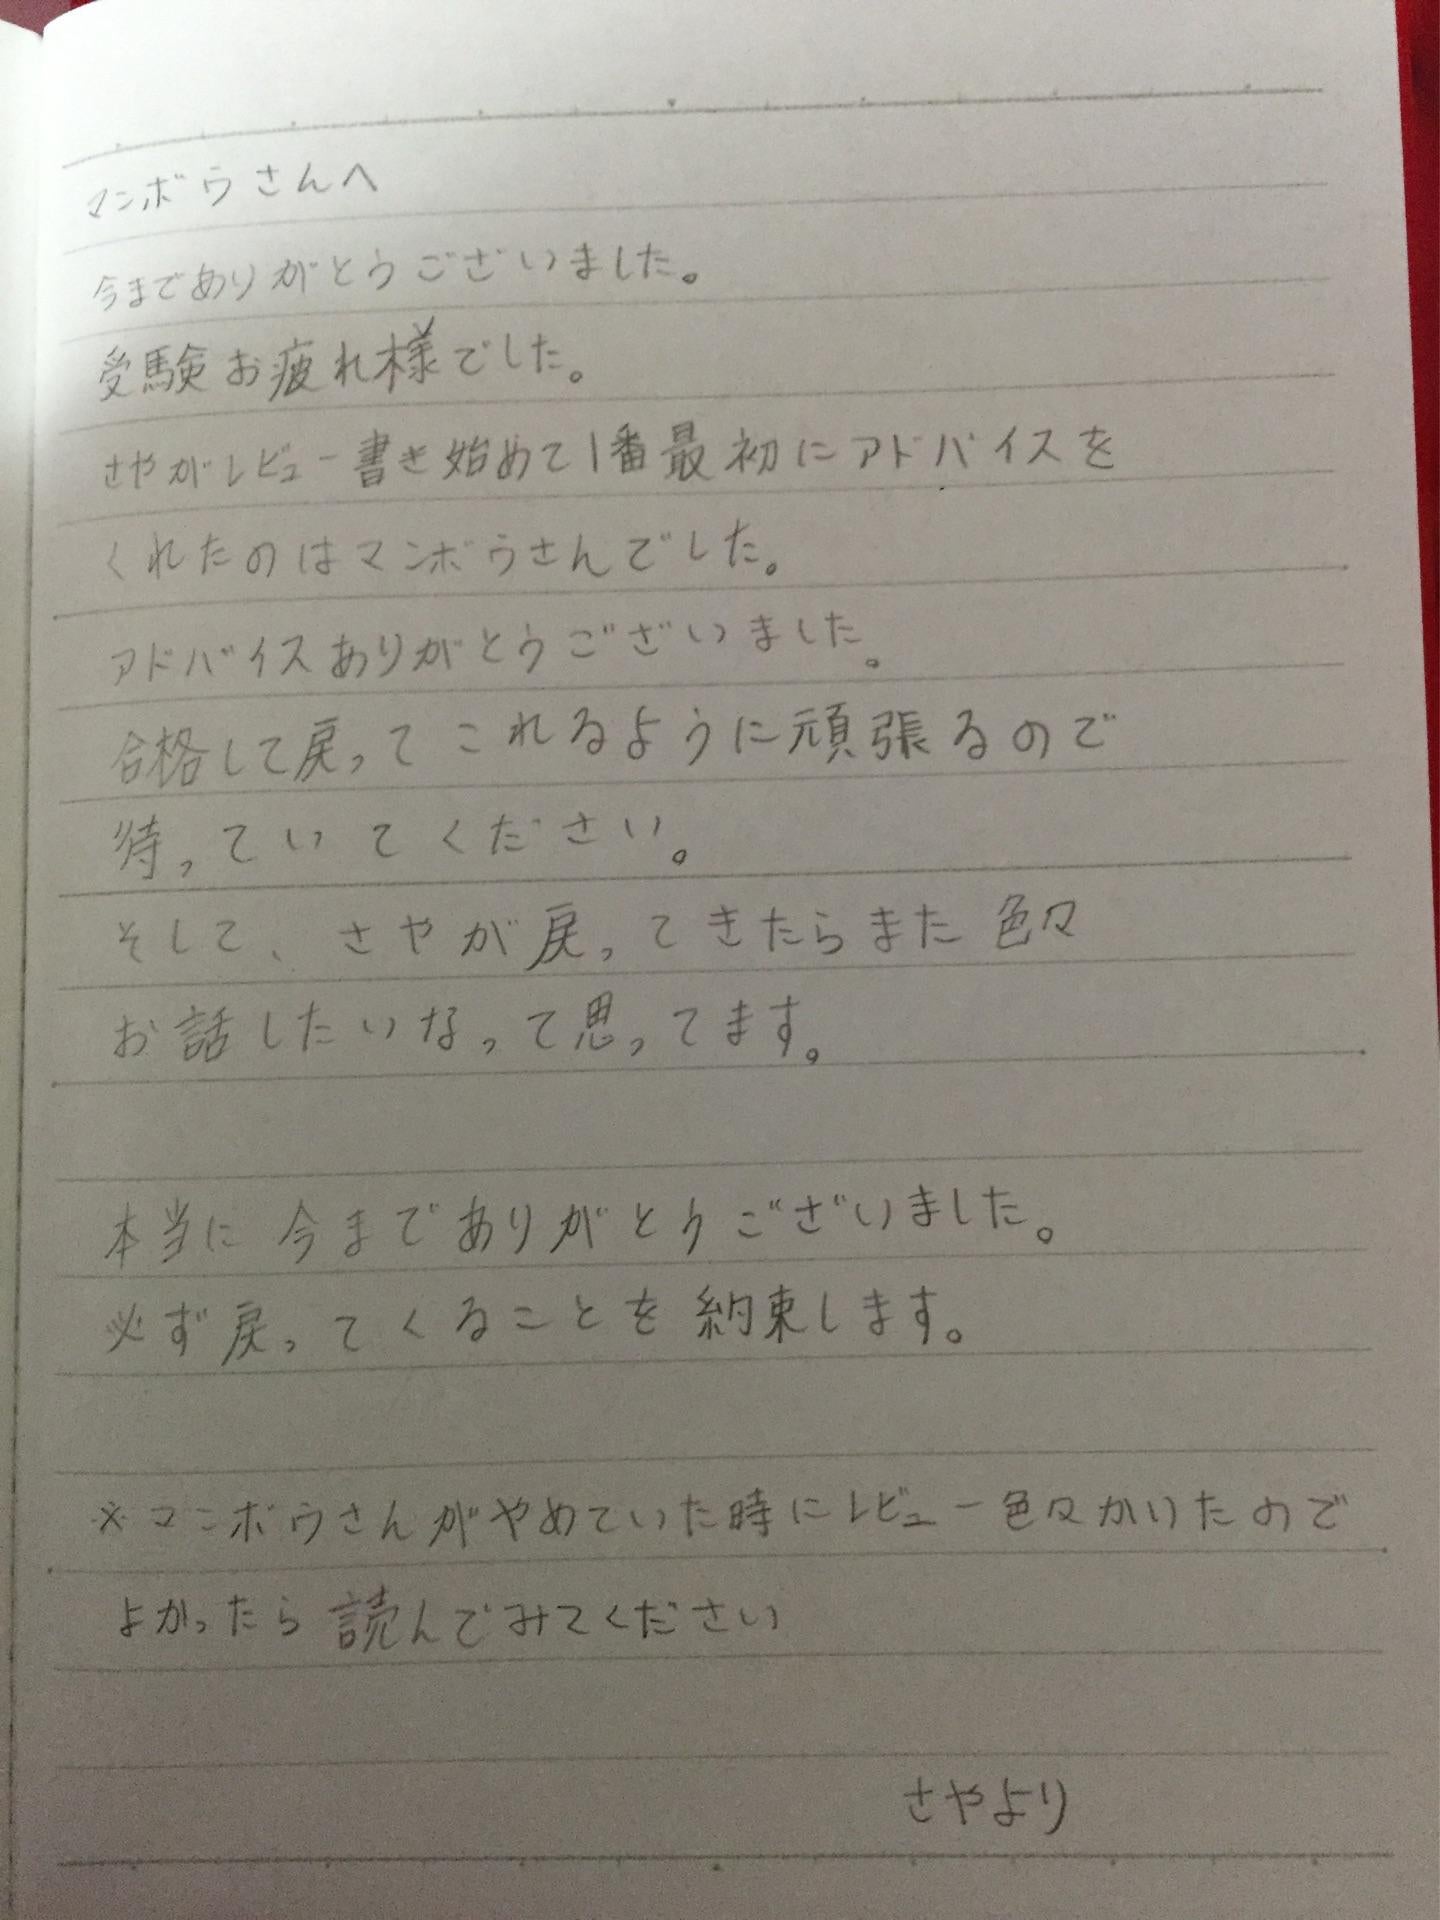 マンボウさんへ
今までありがとうございました。
受験お疲れ様でした。
さやがレビュー書き始めて1番最初にアドバイスを
くれたのはマンボウさんでした。
アドバイスありがとうございました。
合格して戻ってこれるように頑張るので
待っていてください。
そして、さやが戻ってきたらまた色々
お話したいなって思ってます。
本当に今までありがとうございました。
必ず戻ってくることを約束します。
※マンボウさんがやめていた時にレビュー色々かいたので
よかったら読んでみてください
さやより